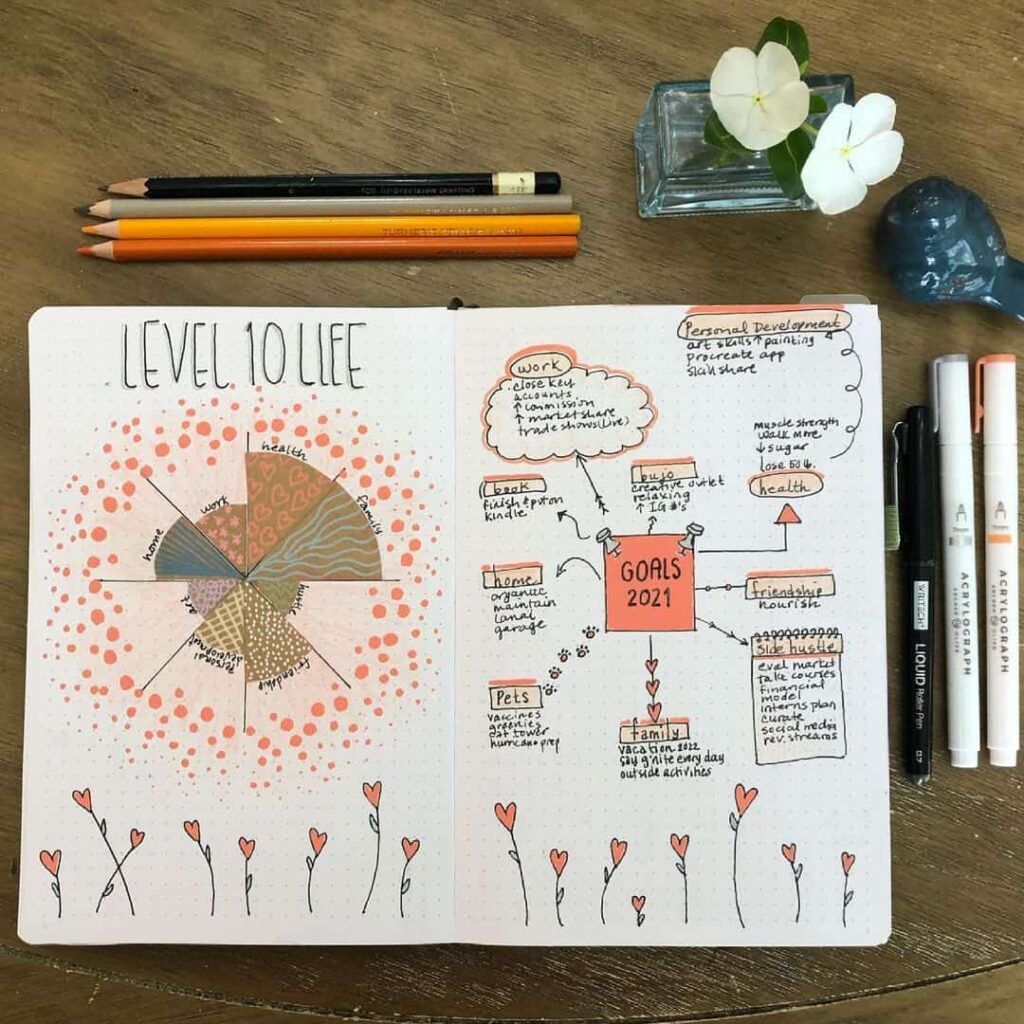 LEVEL 10 LIFE
health
family
work
home
art
hustle
personal
development
friendship
Personal Development
art skills ↑ painting
Procreate app
skillshare
work
close key
accounts
↑ commission
↑ market share
trade shows (live)
muscle strength
walk more
↓ sugar
lose 50 lb.
health
book
finish & put on
kindle
bujo
creative outlet
relaxing
↑ IG #'s
GOALS
2021
home
organize
maintain
lanai
garage
friendship
nourish
side hustle
eval market
take courses
financial
model
interns plan
curate
social media
rev. streams
Pets
vaccines
greenies
cat tower
hurricane prep
family
vacation 2022
say g'nite every day
outside activities
WRITECH
LIQUID Roller Pen
0.7
ACRYLOGRAPH
ARCHER & OLIVE
ACRYLOGRAPH
ARCHER & OLIVE